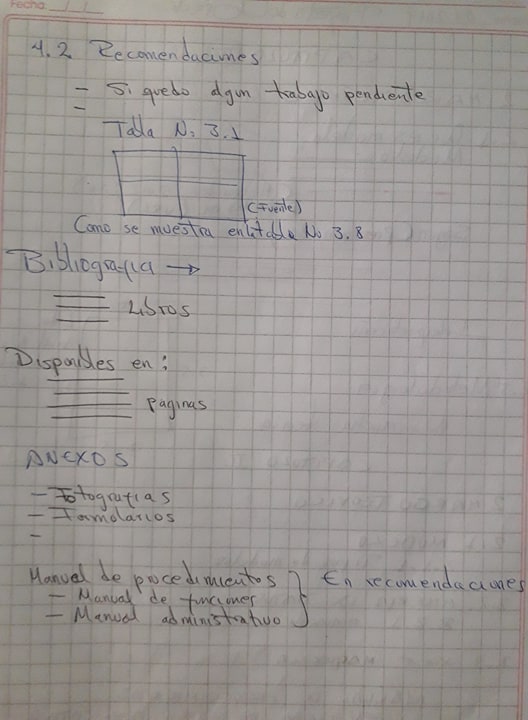 Fecha
4.2 Recomendaciones
- Si quedo algun trabajo pendiente
-
Tabla No 3.1
(Fuente)
Como se muestra en la tabla No 3.8
Bibliografia →
Libros
Disponibles en:
paginas
ANEXOS
- Fotografias
- Formularios
-
Manual de procedimientos } En recomendaciones
- Manual de funciones
- Manual administrativo